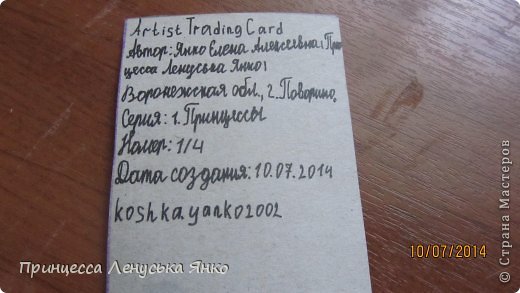 Artist Trading Card
Автор: Янко Елена Алексеевна, Прин
цесса Ленуська Янко!
Воронежская обл., г. Поворино.
Серия: 1. Принцессы
Номер: 1/4
Дата создания: 10.07.2014
koshkayanko2002
10/07/2014
Принцесса Ленуська Янко
© Страна Мастеров